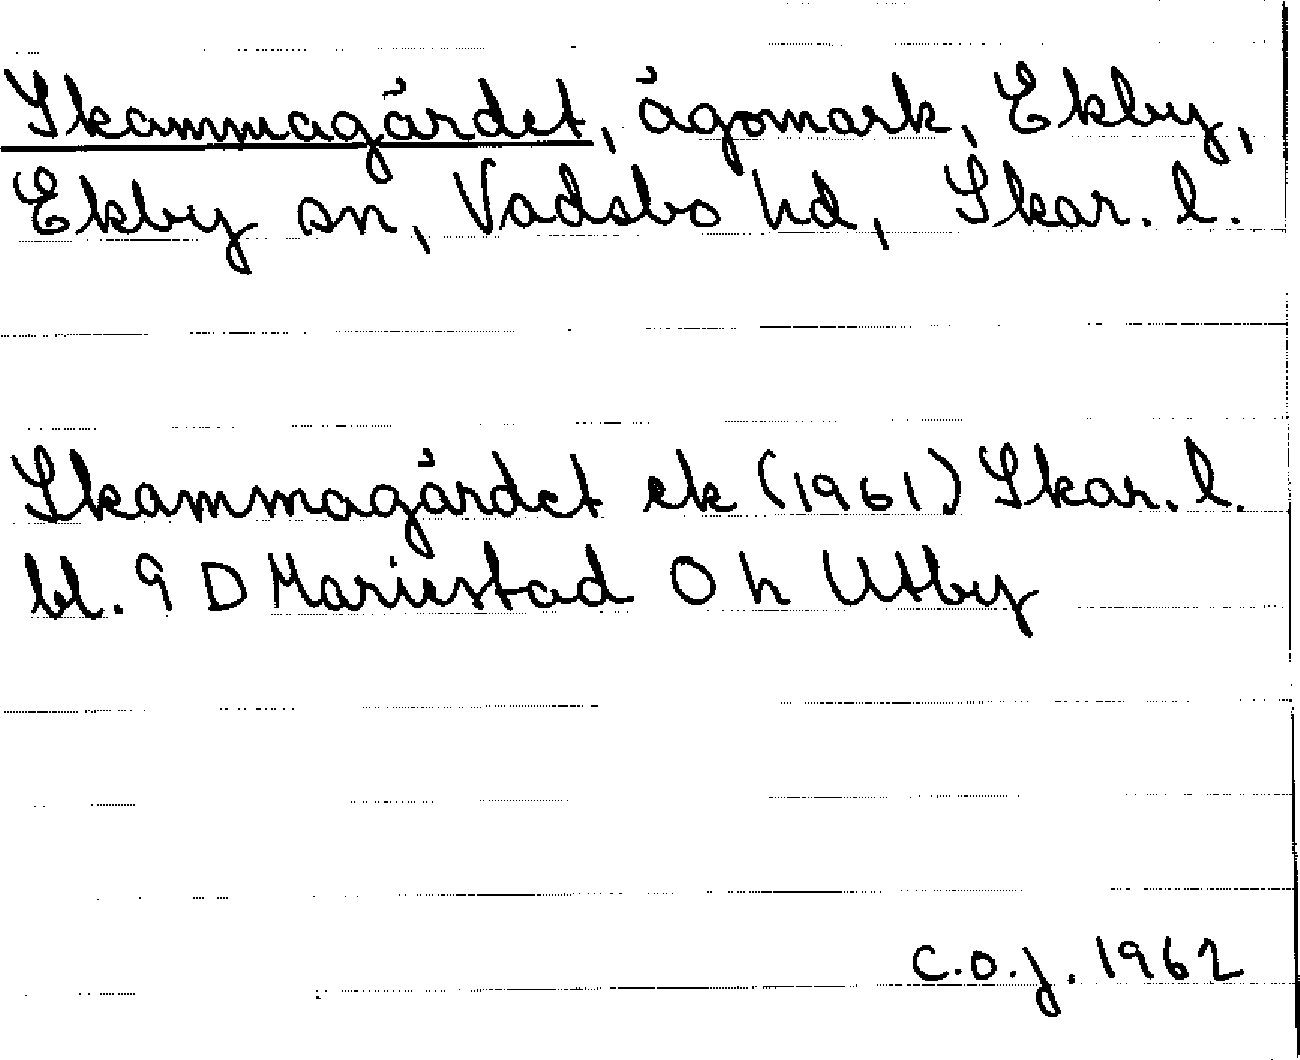 Skammagärdet, ägomark, Ekby,
Ekby sn, Vadsbo hd, Skar. l.
Skammagärdet ek (1961) Skar. l.
bl. 9 D Mariestad O h Utby
C.O.J. 1962